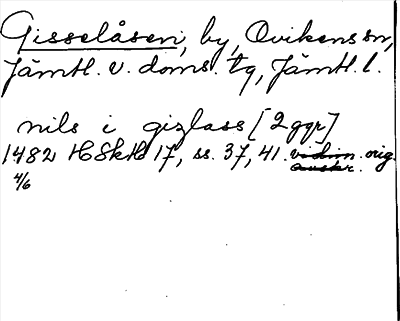 Gisselåsen, by, Ovikens sn,
Jämtl. v. doms. tg, Jämtl. l.
nils i gizlass [2 ggr]
1482 HSkH 17, ss. 37, 41. vidim. orig.
4/6 avskr.